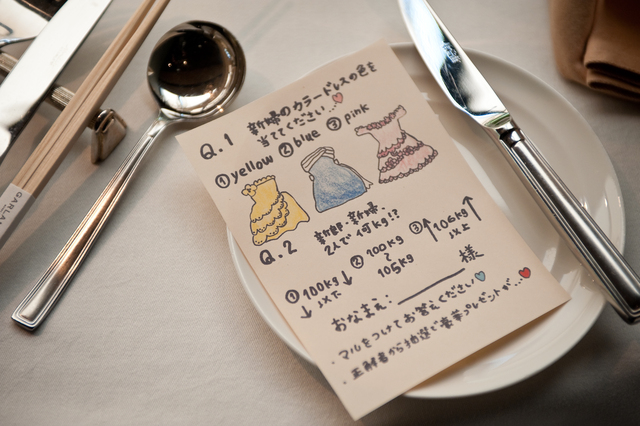 Q.1 新婦のカラードレスの色を
当ててください…♡
①yellow ②blue ③pink
Q.2 新郎・新婦、
2人で何kg!?
①100kg↓
↓以下
②100kg
〜
105kg
③↑106kg↑
以上
おなまえ:________様
・マルをつけてお答えください♡
・正解者から抽選で豪華プレゼントが…♥
GARLAN